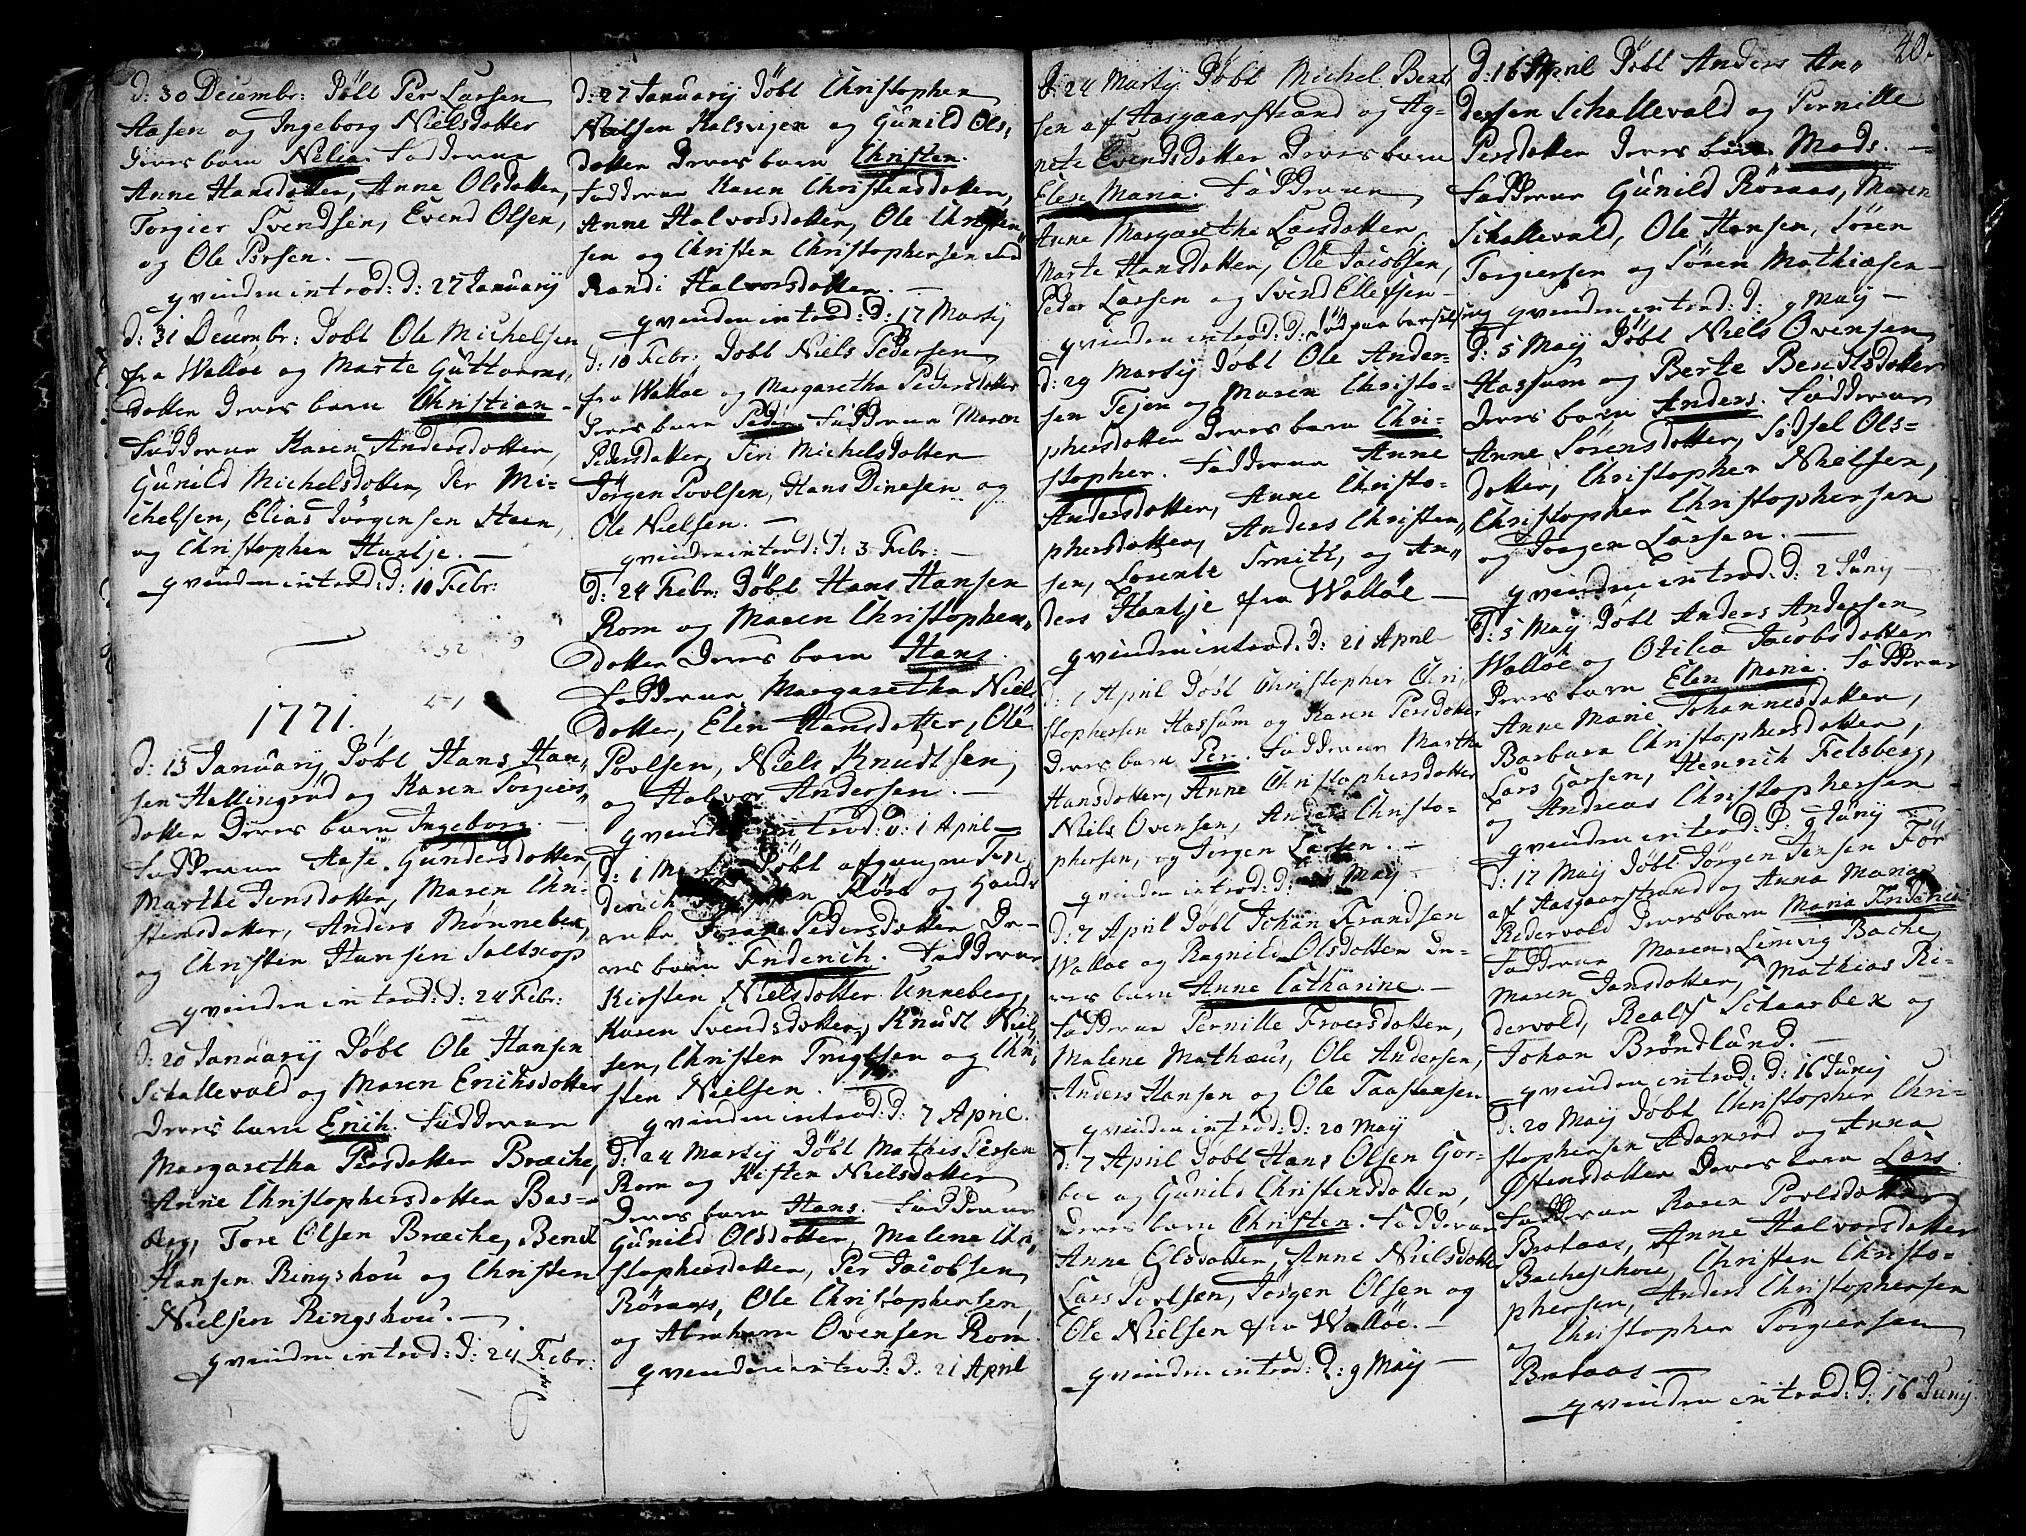 D: 30 Decembr: Döbt Per Larsen
Aasen og Ingeborg Nielsdotter
Deres barn Nelia. Fadderne
Anne Hansdotter, Anne Olsdotter,
Torgier Svendsen, Evend Olsen,
og Ole Persen. —
qvinden introd: D: 27 Januarij
D: 31 Decembr: Döbt Ole Michelsen
fra Walløe og Marte Guttorms-
dotter Deres barn Christian —
Fadderne Karen Andersdotter,
Gunild Michelsdotter, Per Mi-
chelsen, Elias Jörgensen Steen,
og Christopher Hantje. —
qvinden introd: D: 10 Febr:
1771.
D: 13 Januarij Döbt Hans Han-
sen Hallingrød og Karen Torgiers-
dotter Deres barn Ingeborg. —
Fadderne Aase Gundersdotter,
Marthe Jonsdotter, Maren Chri-
stensdotter, Anders Mønnebex,
og Christen Hansen Soltrop
qvinden introd: D: 24 Febr:
D: 20 Januarij Döbt Ole Hansen
Schallevald og Maren Erichsdotter
Deres barn Erich. Fadderne
Margaretha Persdotter Bræche,
Anne Christophersdotter Bas-
berg, Tore Olsen Bræche, Bendt
Hansen Ringshou og Christen
Nielsen Ringshou. —
qvinden introd: D: 24 Febr:
D: 27 Januarij Döbt Christopher
Nielsen Halsvigen og Gunild Ols-
dotter Deres barn Christen.
Fadderne Karen Christensdotter,
Anne Halvorsdotter, Ole Christen-
sen og Christen Christophersen
Randi Halvorsdotter. —
qvinden introd: D: 17 Martij
D: 10 Febr: Döbt Niels Pedersen
fra Walløe og Margaretha Pedersdotter
Deres barn Peder Fadderne Maren
Pedersdotter, Siri Michelsdotter
Jörgen Povlsen, Hans Dinesen og
Ole Nielsen. —
qvinden introd: D: 3 Febr: —
D: 24 Febr: Döbt Hans Hansen
Rom og Maren Christophers-
dotter Deres barn Hans.
Fadderne Margaretha Niels
dotter, Elen Hansdotter, Ole
Povlsen, Niels Knudtsen,
og Halvor Andersen. —
qvinden introd: D: 1 April —
D: 1 Martij Döbt afgangne Fri
derich Röse og
Pedersdotter De-
res barn Friderich. Fadderne
Kirsten Nielsdotter Unneberg,
Karen Svendsdotter, Knudt Niel-
sen, Christen Trugelsen og Chri-
sten Nielsen. —
qvinden introd: D: 7 April.
D: 24 Martij Döbt Mathis Persen
Rom og Kisten Nielsdotter
Deres barn Hans. Fadderne
Gunild Olsdotter, Malene Chri-
stophersdotter, Per Jacobsen
Röraas, Ole Christophersen,
og Abraham Ovensen Rom.
qvinden introd: D: 21 April
40.
D: 24 Martij Döbt Michel Bent
sen af Aasgaarstrand og Ag-
nete Evendsdotter Deres barn
Elen Maria. Fadderne
Anne Margaretha Larsdotter
Marte Hansdotter, Ole Jacobsen,
Peder Larsen og Svend Ellefsen —
qvinden introd: D: Död paa barselseng
D: 29 Martij Döbt Ole Ander-
sen Tejen og Maren Christo-
phersdotter Deres barn Chri-
stopher. Fadderne Anne
Andersdotter, Anne Christo-
phersdotter, Anders Christen-
sen, Lorentz Smitt, og An-
ders Hantje fra Walløe —
qvinden introd: D: 21 April
D: 1 April Döbt Christopher Chri-
stophersen Hassum og Karen Persdotter
Deres barn Per. Fadderne Marthe
Hansdotter, Anne Christophersdotter
Niels Ovensen, Anders Christo-
phersen, og Jørgen Larsen. —
qvinden introd: D: Maij —
D: 7 April Döbt Johan Frandsen
Walløe og Ragnild Olsdotter De-
res barn Anne Catharine. —
Fadderne Pernille Froersdotter,
Malene Mathæus, Ole Andersen,
Anders Hansen og Ole Taastensen
qvinden introd: D: 20 Maij
D: 7 April Döbt Hans Olsen Gor-
boe og Gunild Christensdotter,
Deres barn Christen. Fadderne
Anne Olsdotter, Anne Nielsdotter
Lars Povlsen, Jørgen Olsen og
Ole Nielsen fra Walløe. —
qvinden introd: D: 9 Maij —
D: 16 April Döbt Anders An-
dersen Schallevald og Pernille
Persdotter Deres barn Mads. —
Fadderne Gunild Röraas, Maren
Schallevald, Ole Hansen, Sören
Torgiersen og Sören Mathiæsen —
qvinden introd: D: 9 Maij —
D: 5 Maij Döbt Niels Ovensen
Hassum og Berte Bendtsdotter
Deres barn Anders. Fadderne
Anne Sörensdotter, Sidsel Ols-
dotter, Christopher Nielsen,
Christopher Christophersen
og Jörgen Larsen. —
qvinden introd: D: 2 Junij —
D: 5 Maij Döbt Anders Andersen
Walløe og Otilia Jacobsdotter
Deres barn Elen Maria. Fadderne
Anne Marie Johannesdotter,
Barbara Christophersdotter,
Lars Larsen, Henrich Felsberg,
og Andreas Christophersen
qvinden introd: D: 9 Junij —
D: 17 Maij Döbt Jörgen Jensen För
af Aasgaarstrand og Anna Maria
Ridervold Deres barn Maria Friderica
Fadderne Maren Lemvig Bache,
Maren Jansdotter, Mathias Ri-
dervold, Realf Schaarbex og
Johan Brøndlund. —
qvinden introd: D: 16 Junij
D: 20 Maij Döbt Christopher Chri-
stophersen Adamröd og Anna
Østensdotter Deres barn Lars.
Fadderne Karen Povlsdotter
Brataas, Anne Halvorsdotter
Bacheschou, Christen Christo-
phersen, Anders Christophersen
og Christopher Torgiersen
Brataas —
qvinden introd: D: 16 Junij.